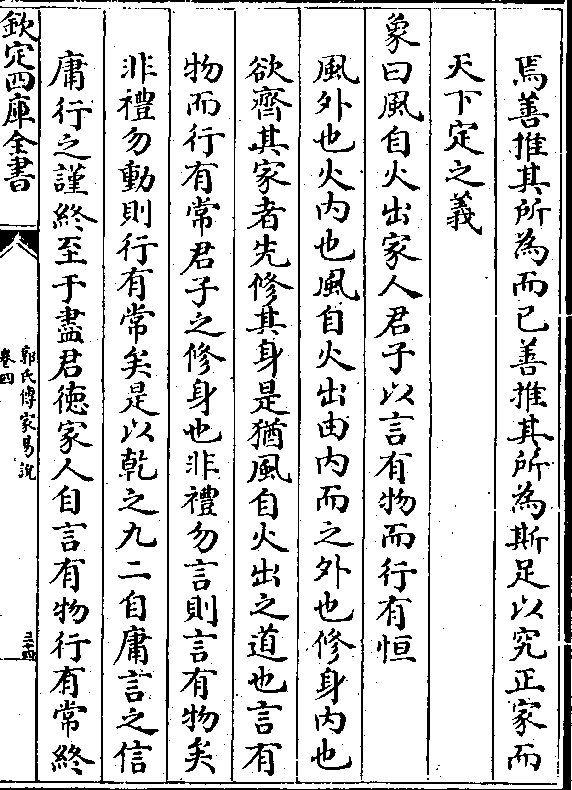 焉善推其所為而已善推其所為斯足以究正家而
天下定之義
象曰風自火出家人君子以言有物而行有恒
風外也火内也風自火出由内而之外也修身内也
欲齊其家者先修其身是猶風自火出之道也言有
物而行有常君子之修身也非禮勿言則言有物矣
非禮勿動則行有常矣是以乾之九二自庸言之信
庸行之謹終至于盡君徳家人自言有物行有常終
欽定四庫全書
郭氏傳家易說
卷四
三十四